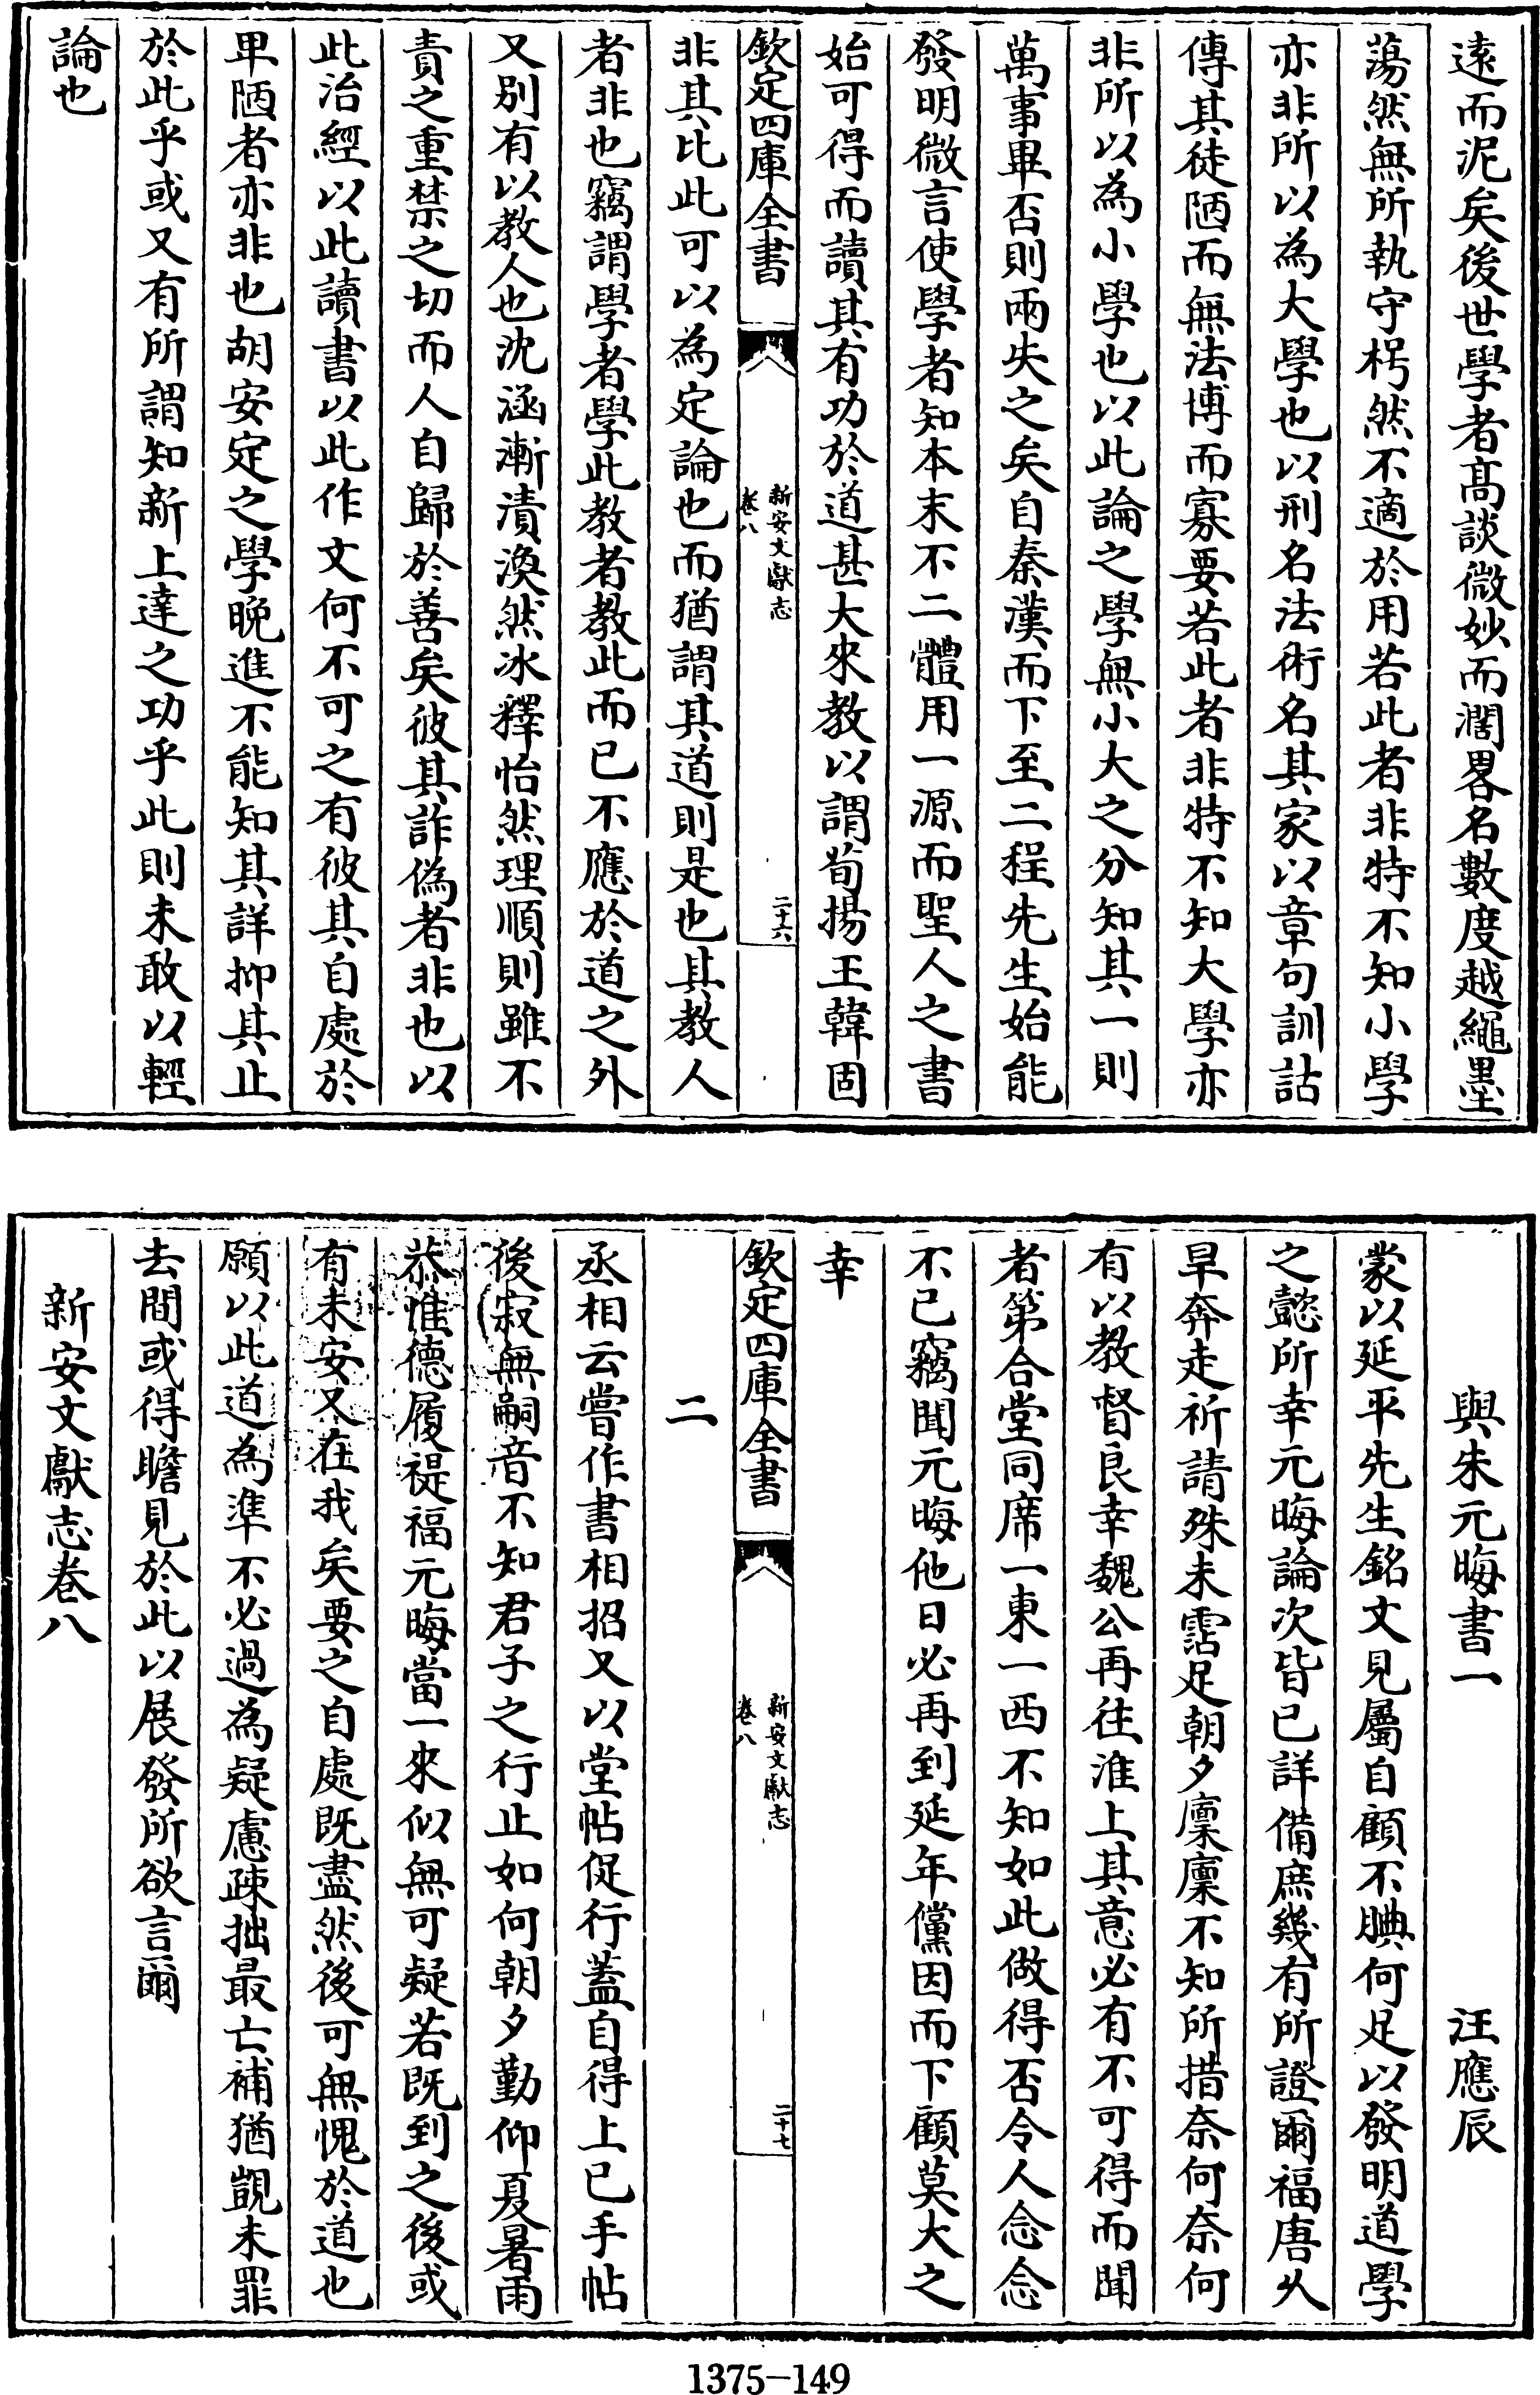 遠而泥矣後世學者髙談微妙而濶畧名數度越繩墨
蕩然無所執守枵然不適於用若此者非特不知小學
亦非所以為大學也以刑名法術名其家以章句訓詁
傳其徒陋而無法博而寡要若此者非特不知大學亦
非所以為小學也以此論之學無小大之分知其一則
萬事畢否則兩失之矣自秦漢而下至二程先生始能
發明微言使學者知本末不二體用一源而聖人之書
始可得而讀其有功於道甚大來教以謂荀揚王韓固
欽定四庫全書
新安文獻志
卷八
二十六
非其比此可以為定論也而猶謂其道則是也其教人
者非也竊謂學者學此教者教此而已不應於道之外
又别有以教人也沈涵漸漬渙然冰釋怡然理順則雖不
責之重禁之切而人自歸於善矣彼其詐偽者非也以
此治經以此讀書以此作文何不可之有彼其自處於
卑陋者亦非也胡安定之學晚進不能知其詳抑其止
於此乎或又有所謂知新上達之功乎此則未敢以輕
論也
與朱元晦書一　汪應辰
蒙以延平先生銘文見屬自顧不腆何足以發明道學
之懿所幸元晦論次皆已詳備庶幾有所證爾福唐久
旱奔走祈請殊未霑足朝夕廩廩不知所措奈何奈何
有以教督良幸魏公再往淮上其意必有不可得而聞
者第合堂同席一東一西不知如此做得否令人念念
不已竊聞元晦他日必再到延年儻因而下顧莫大之
幸
欽定四庫全書
新安文獻志
卷八
二十七
二
丞相云嘗作書相招又以堂帖促行蓋自得上已手帖
後寂無嗣音不知君子之行止如何朝夕勤仰夏暑雨
恭惟德履禔福元晦當一來似無可疑若既到之後或
有未安又在我矣要之自處既盡然後可無愧於道也
願以此道為準不必過為疑慮疎拙最亡補猶覬未罪
去間或得瞻見於此以展發所欲言爾
新安文獻志卷八
1375-149